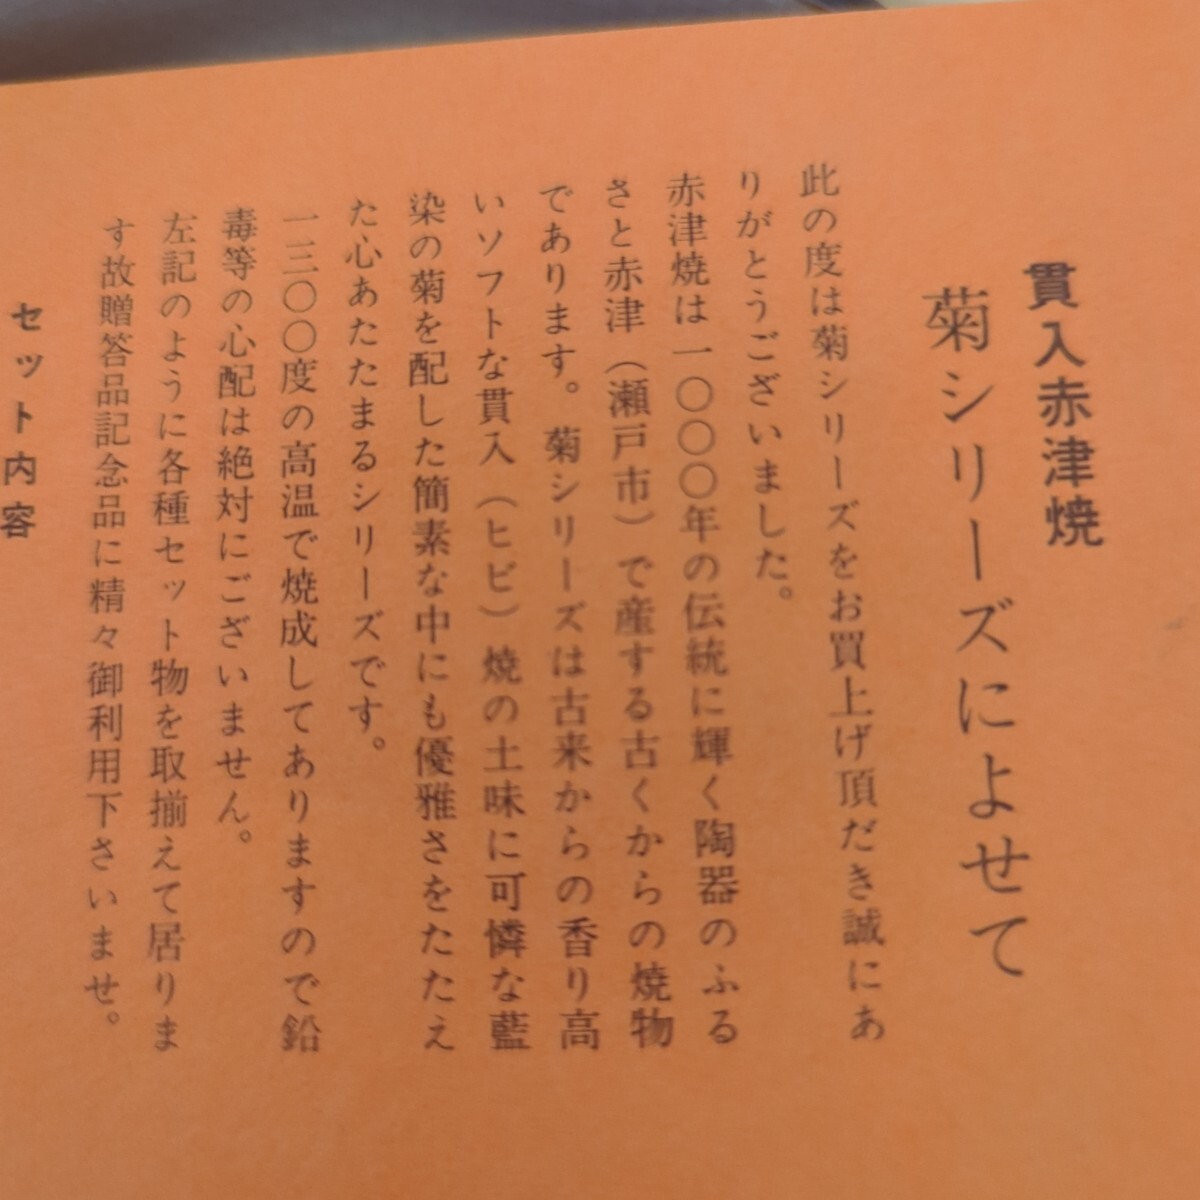 貫入赤津焼
菊シリーズによせて
此の度は菊シリーズをお買上げ頂だき誠にあ
りがとうございました。
赤津焼は一〇〇〇年の伝統に輝く陶器のふる
さと赤津（瀬戸市）で産する古くからの焼物
であります。菊シリーズは古来からの香り高
いソフトな貫入（ヒビ）焼の土味に可憐な藍
染の菊を配した簡素な中にも優雅さをたたえ
た心あたたまるシリーズです。
一三〇〇度の高温で焼成してありますので鉛
毒等の心配は絶対にございません。
左記のように各種セット物を取揃えて居りま
す故贈答品記念品に精々御利用下さいませ。
セット内容